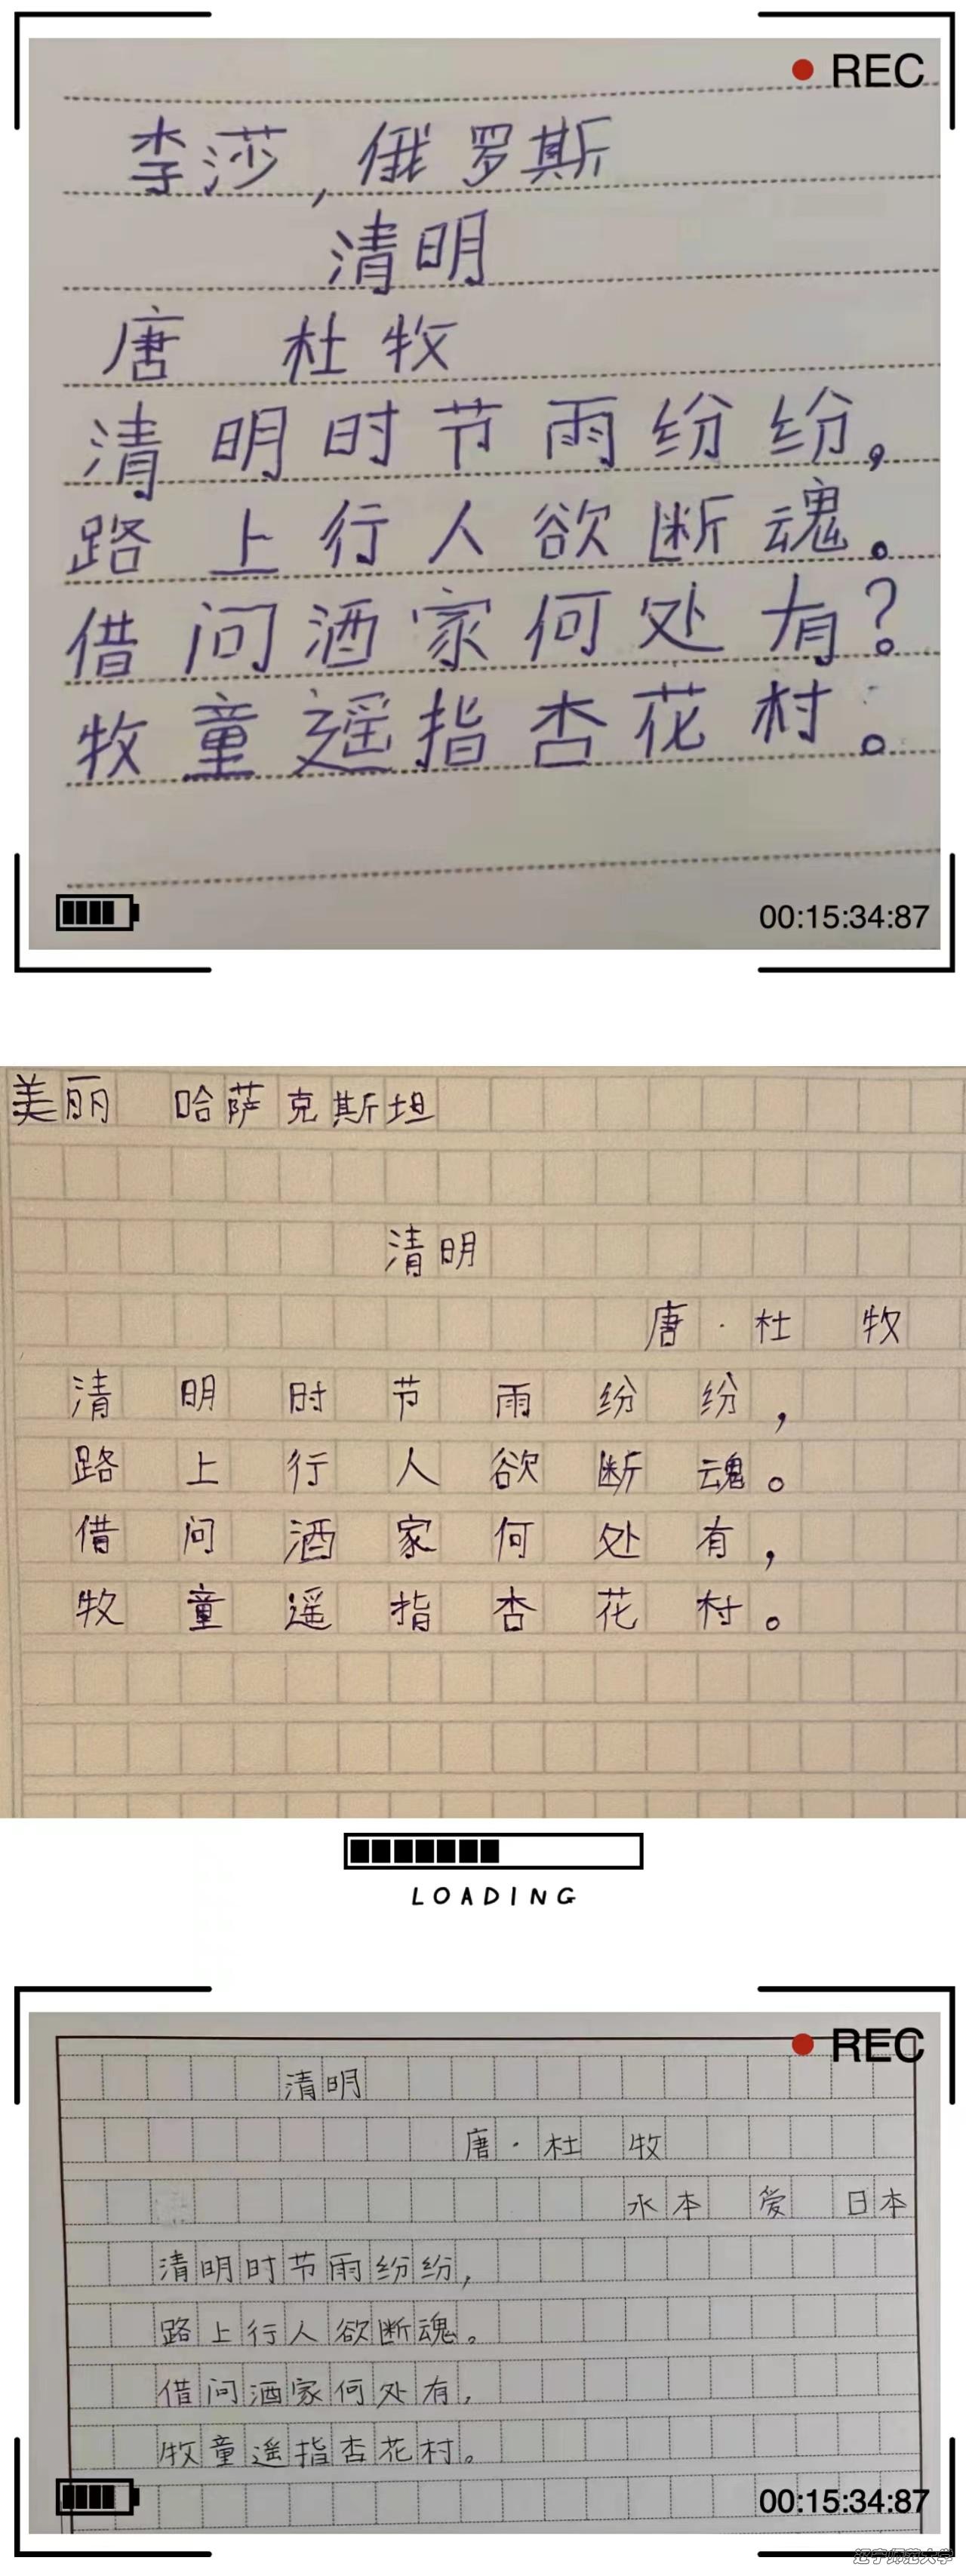 REC
李莎,俄罗斯
清明
唐 杜牧
清明时节雨纷纷,
路上行人欲断魂。
借问酒家何处有?
牧童遥指杏花村。
00:15:34:87
美丽 哈萨克斯坦
清明
唐·杜 牧
清明时节雨纷纷,
路上行人欲断魂。
借问酒家何处有,
牧童遥指杏花村。
LOADING
REC
清明
唐·杜 牧
水本 爱 日本
清明时节雨纷纷,
路上行人欲断魂。
借问酒家何处有,
牧童遥指杏花村。
00:15:34:87
辽宁师范大学